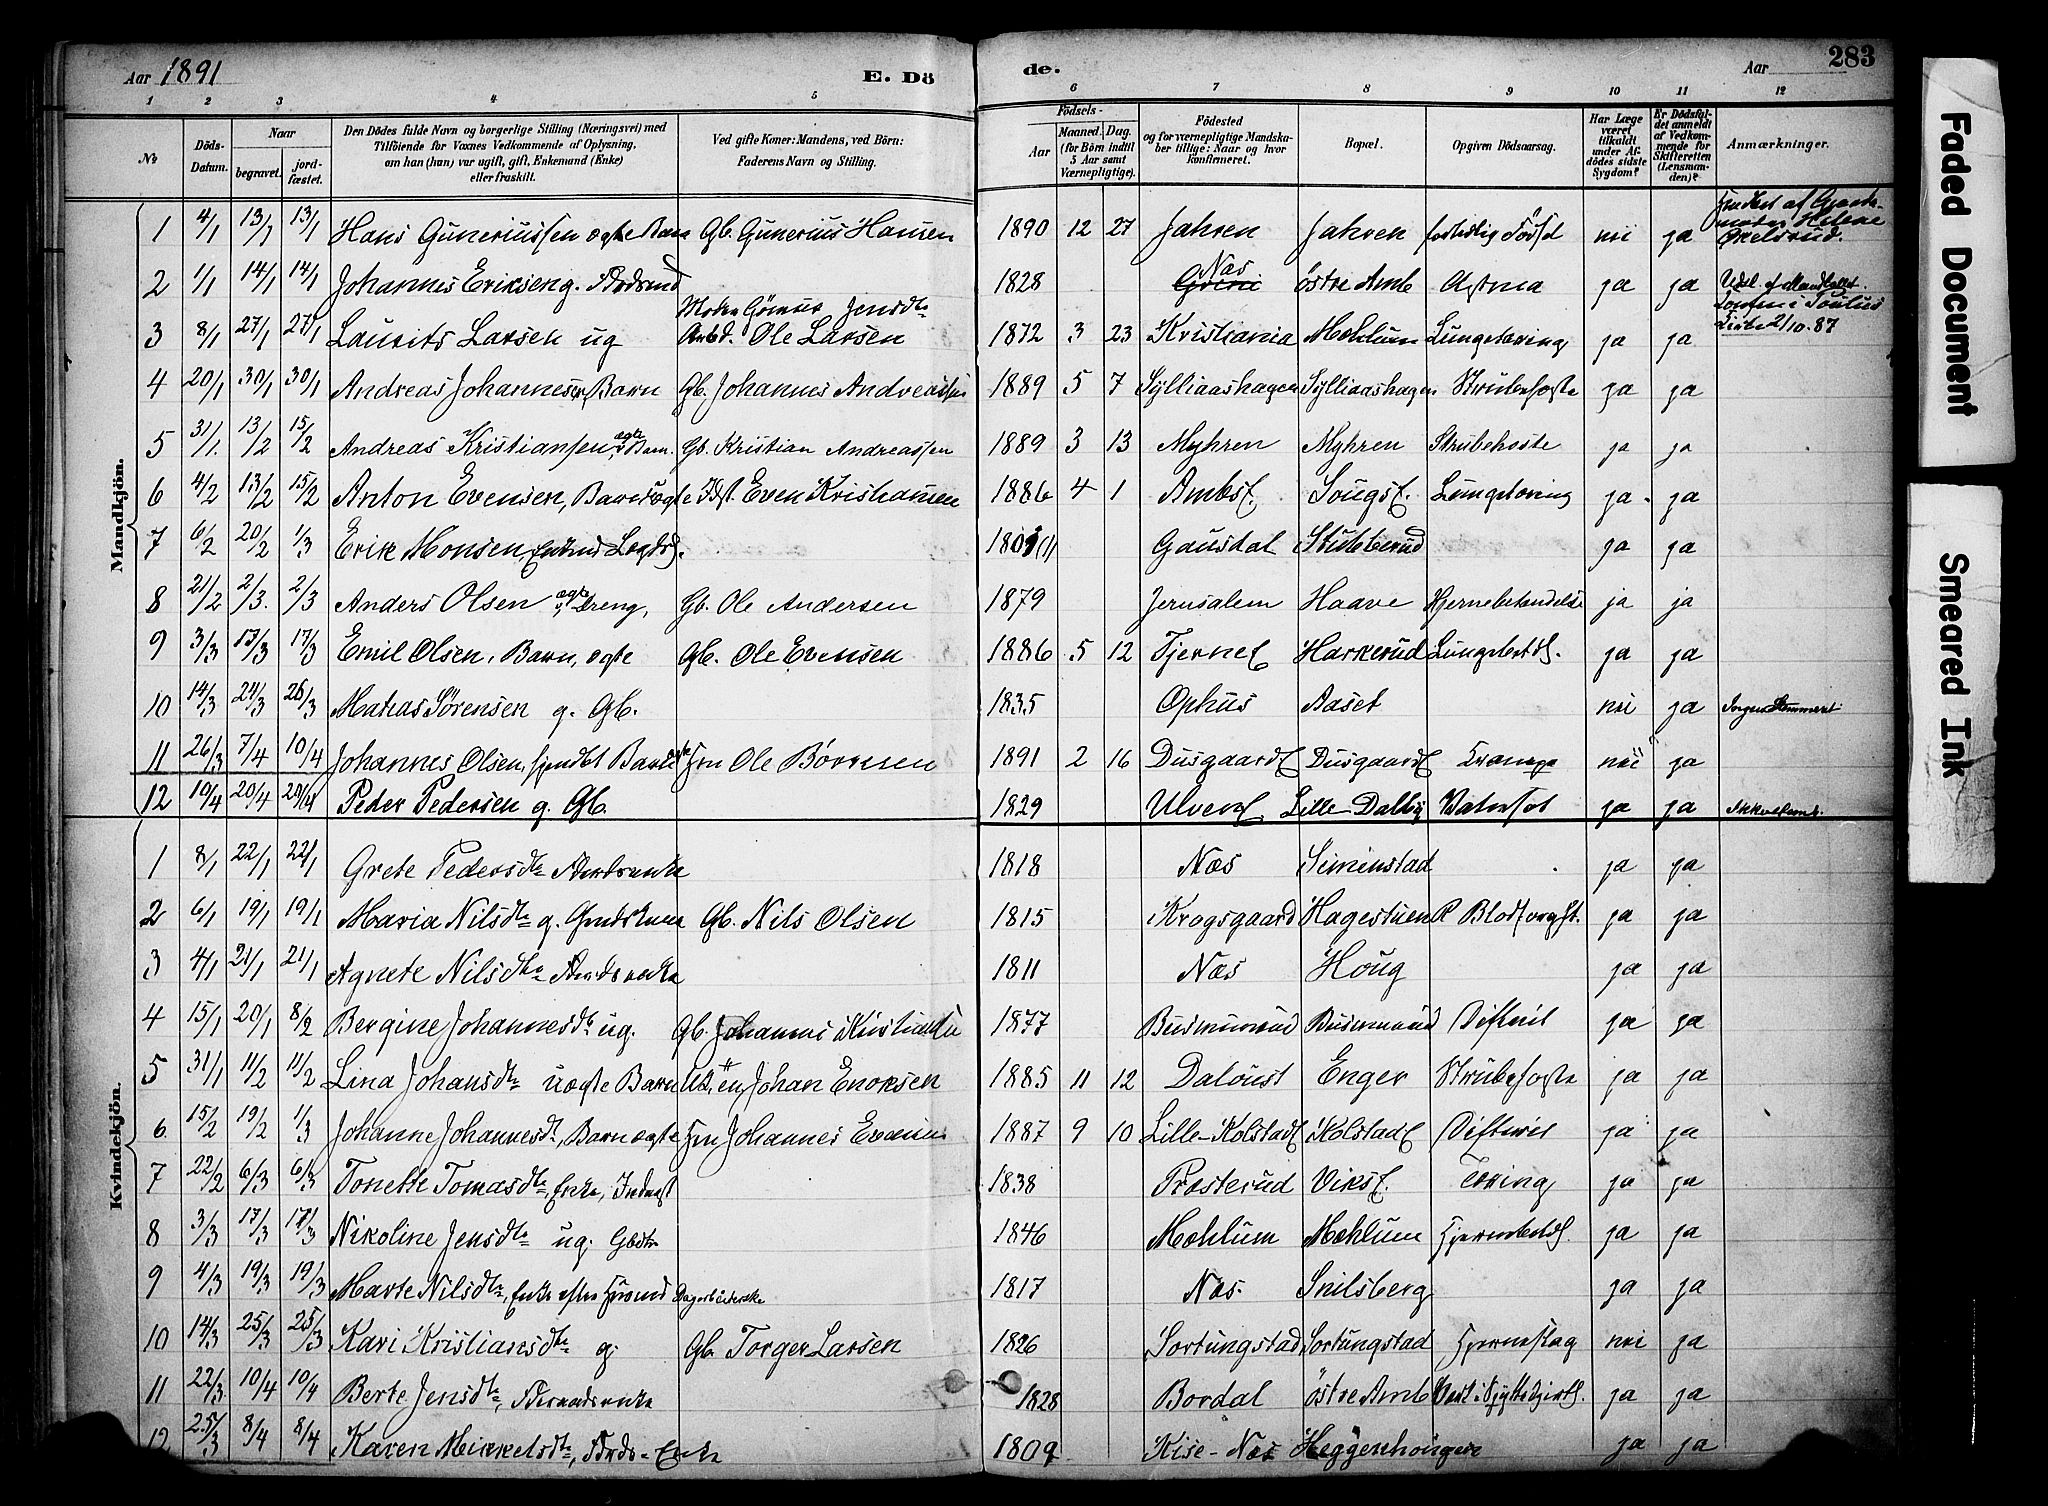 Aar 1891 E. Dö de. Aar 283
1 2 3 4 5 6 7 8 9 10 11 12
No Döds-Datum. Naar begravet. jord-fæstet. Den Dödes fulde Navn og borgerlige Stilling (Næringsvei) med Tilföiende for Voxnes Vedkommende af Oplysning, om han (hun) var ugift, gift, Enkemand (Enke) eller fraskilt. Ved gifte Koner: Mandens, ved Börn: Faderens Navn og Stilling. Födsels- Aar Maaned. Dag. (for Börn indtil 5 Aar samt Værnepligtige). Födested og for værnepligtige Mandska-ber tillige: Naar og hvor konfirmeret. Bopæl. Opgiven Dödsaarsag. Har Læge været tilkaldt under Af-dödes sidste Sygdom? Er Dödsfal-det anmeldt af Vedkom-mende for Skifteretten (Lensman-den)? Anmærkninger.
Mandkjön.
1 4/1 13/1 13/1 Hans Guneriussen ægte Barn Gb. Gunerius Hansen 1890 12 27 Jahren Jahren fortidlig Födsel nei ja
2 1/1 14/1 14/1 Johannes Eriksen g. Næs 1828 östre Amb Astma ja ja
3 8/1 27/1 27/1 Laurits Larsen ug Moder Jensdtr Arbd. Ole Larsen 1872 3 23 Kristiania Mæhlum Lungetæring ja ja 2/10.87
4 20/1 30/1 30/1 Andreas Johannesen, Barn Gb. Johannes Andreassen 1889 5 7 Sylliaashagen Sylliaashagen Strubehoste ja ja
5 31/1. 13/2 15/2 Andreas Kristiansen, ægte Barn. Gb. Kristian Andreassen 1889 3 13 Myhren Myhren Strubehoste ja ja
6 4/2 13/2 15/2 Anton Evensen, Barn ægte Idst. Even Kristiansen 1886 4 1 Ambsf. Lungetæring ja ja
7 6/2 20/2 1/3 Erik Monsen, Enkmd Lægds. Gausdal Stubberud ja ja
8 21/2 2/3. 2/3 Anders Olsen ægte Dreng, Gb. Ole Andersen 1879 Jerusalem Haave Hjernebetændelse ja ja
9 3/3 17/3 17/3 Emil Olsen, Barn, ægte Gb. Ole Evensen 1886 5 12 Tjerne Harkerud ja ja
10 14/3 24/3 26/3 Matias Sörensen g. Gb. 1835 Ophus Aaset nei ja
11 26/3 7/4 10/4 Johannes Olsen, Barn ægte Ole Börresen 1891 2 16 Dusgaard Dusgaard Krampe nei ja
12 10/4 20/4 20/4 Peder Pedersen g. Gb. 1829 Ulven Lille-Dalby Vatersot ja ja
Kvindekjön.
1 8/1 22/1 22/1 Grete Pedersdtr 1818 Næs Siminstad ja ja
2 6/1 19/1 19/1 Maria Nilsdtr g. Gb. Nils Olsen 1815 Krogsgaard Hagestuen ja ja
3 4/1 21/1 21/1 Agnete Nilsdtr 1811 Næs Houg ja ja
4 15/1 20/1 8/2 Bergine Johannesdtr ug. Gb. Johannes Kristiansen 1877 Busmurud Busmurud Difteri ja ja
5 31/1 11/2 11/2 Lina Johansdtr uægte Barn Johan Enoksen 1885 11 12 Daloust Enger Strubehoste ja ja
6 15/2 19/2 1/3 Johanne Johannesdtr, Barn ægte Johannes Evensen 1887 9 10 Lille-Kolstad Kolstad Difteri ja ja
7 22/2 6/3 6/3 Tonette Tomasdtr, Enke, Inderst 1838 Præsterud Viksf. Tæring ja ja
8 3/3 17/3 17/3 Nikoline Jensdtr ug. Gbdtr 1846 Mæhlum Mæhlum ja ja
9 4/3 19/3 19/3 Marte Nilsdtr, Enke efter Dagarbeiderske 1817 Næs. Snilsberg ja ja
10 14/3 25/3 25/3 Kari Kristiansdtr g. Gb. Torger Larsen 1826 Sortungstad Sortungstad Hjerneslag nei ja
11 22/3 10/4 10/4 Berte Jensdtr, 1828 Bordal östre Amb ja ja
12 25/3 8/4 8/4 Karen Mikkelsdtr, Enke 1809 Kise-Næs ja ja
Faded Document
Smeared Ink